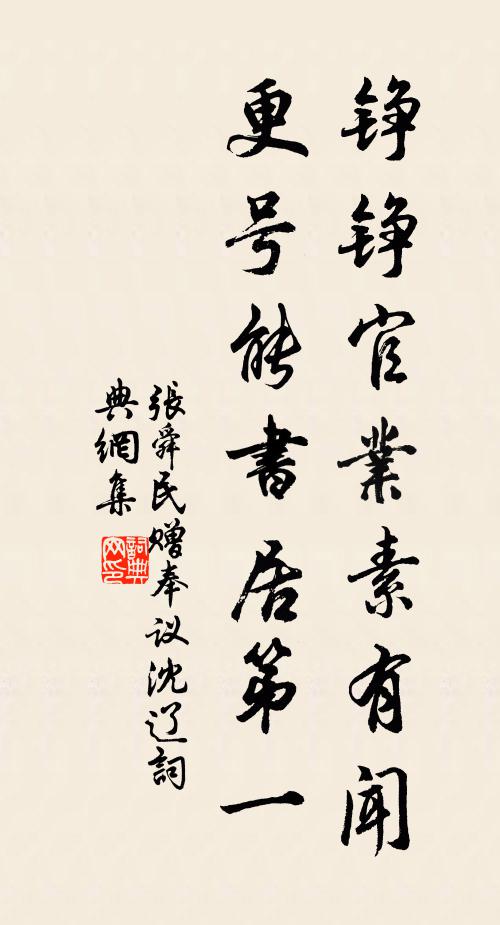 铮铮官業素有闻
更号能書居第一
張舜民赠奉议沈辽詞
典網集
詞典
网印